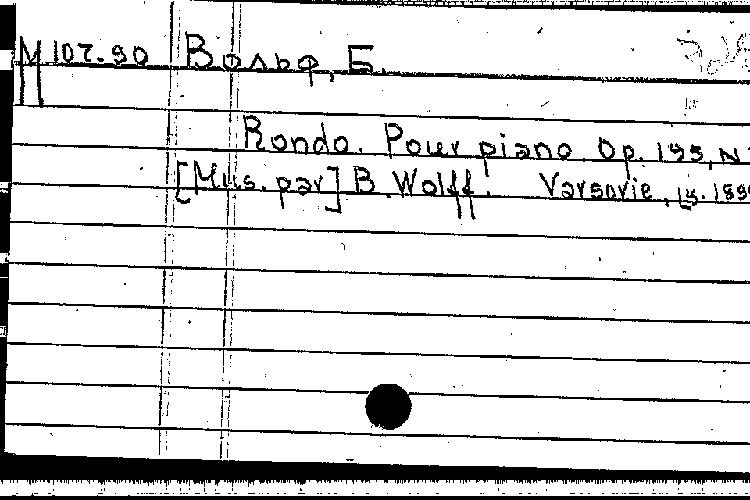 М 107.90 Вольф, Б.
Rondo. Pour piano Op. 199, N
[Mus. par] B. Wolff. Varsovie,